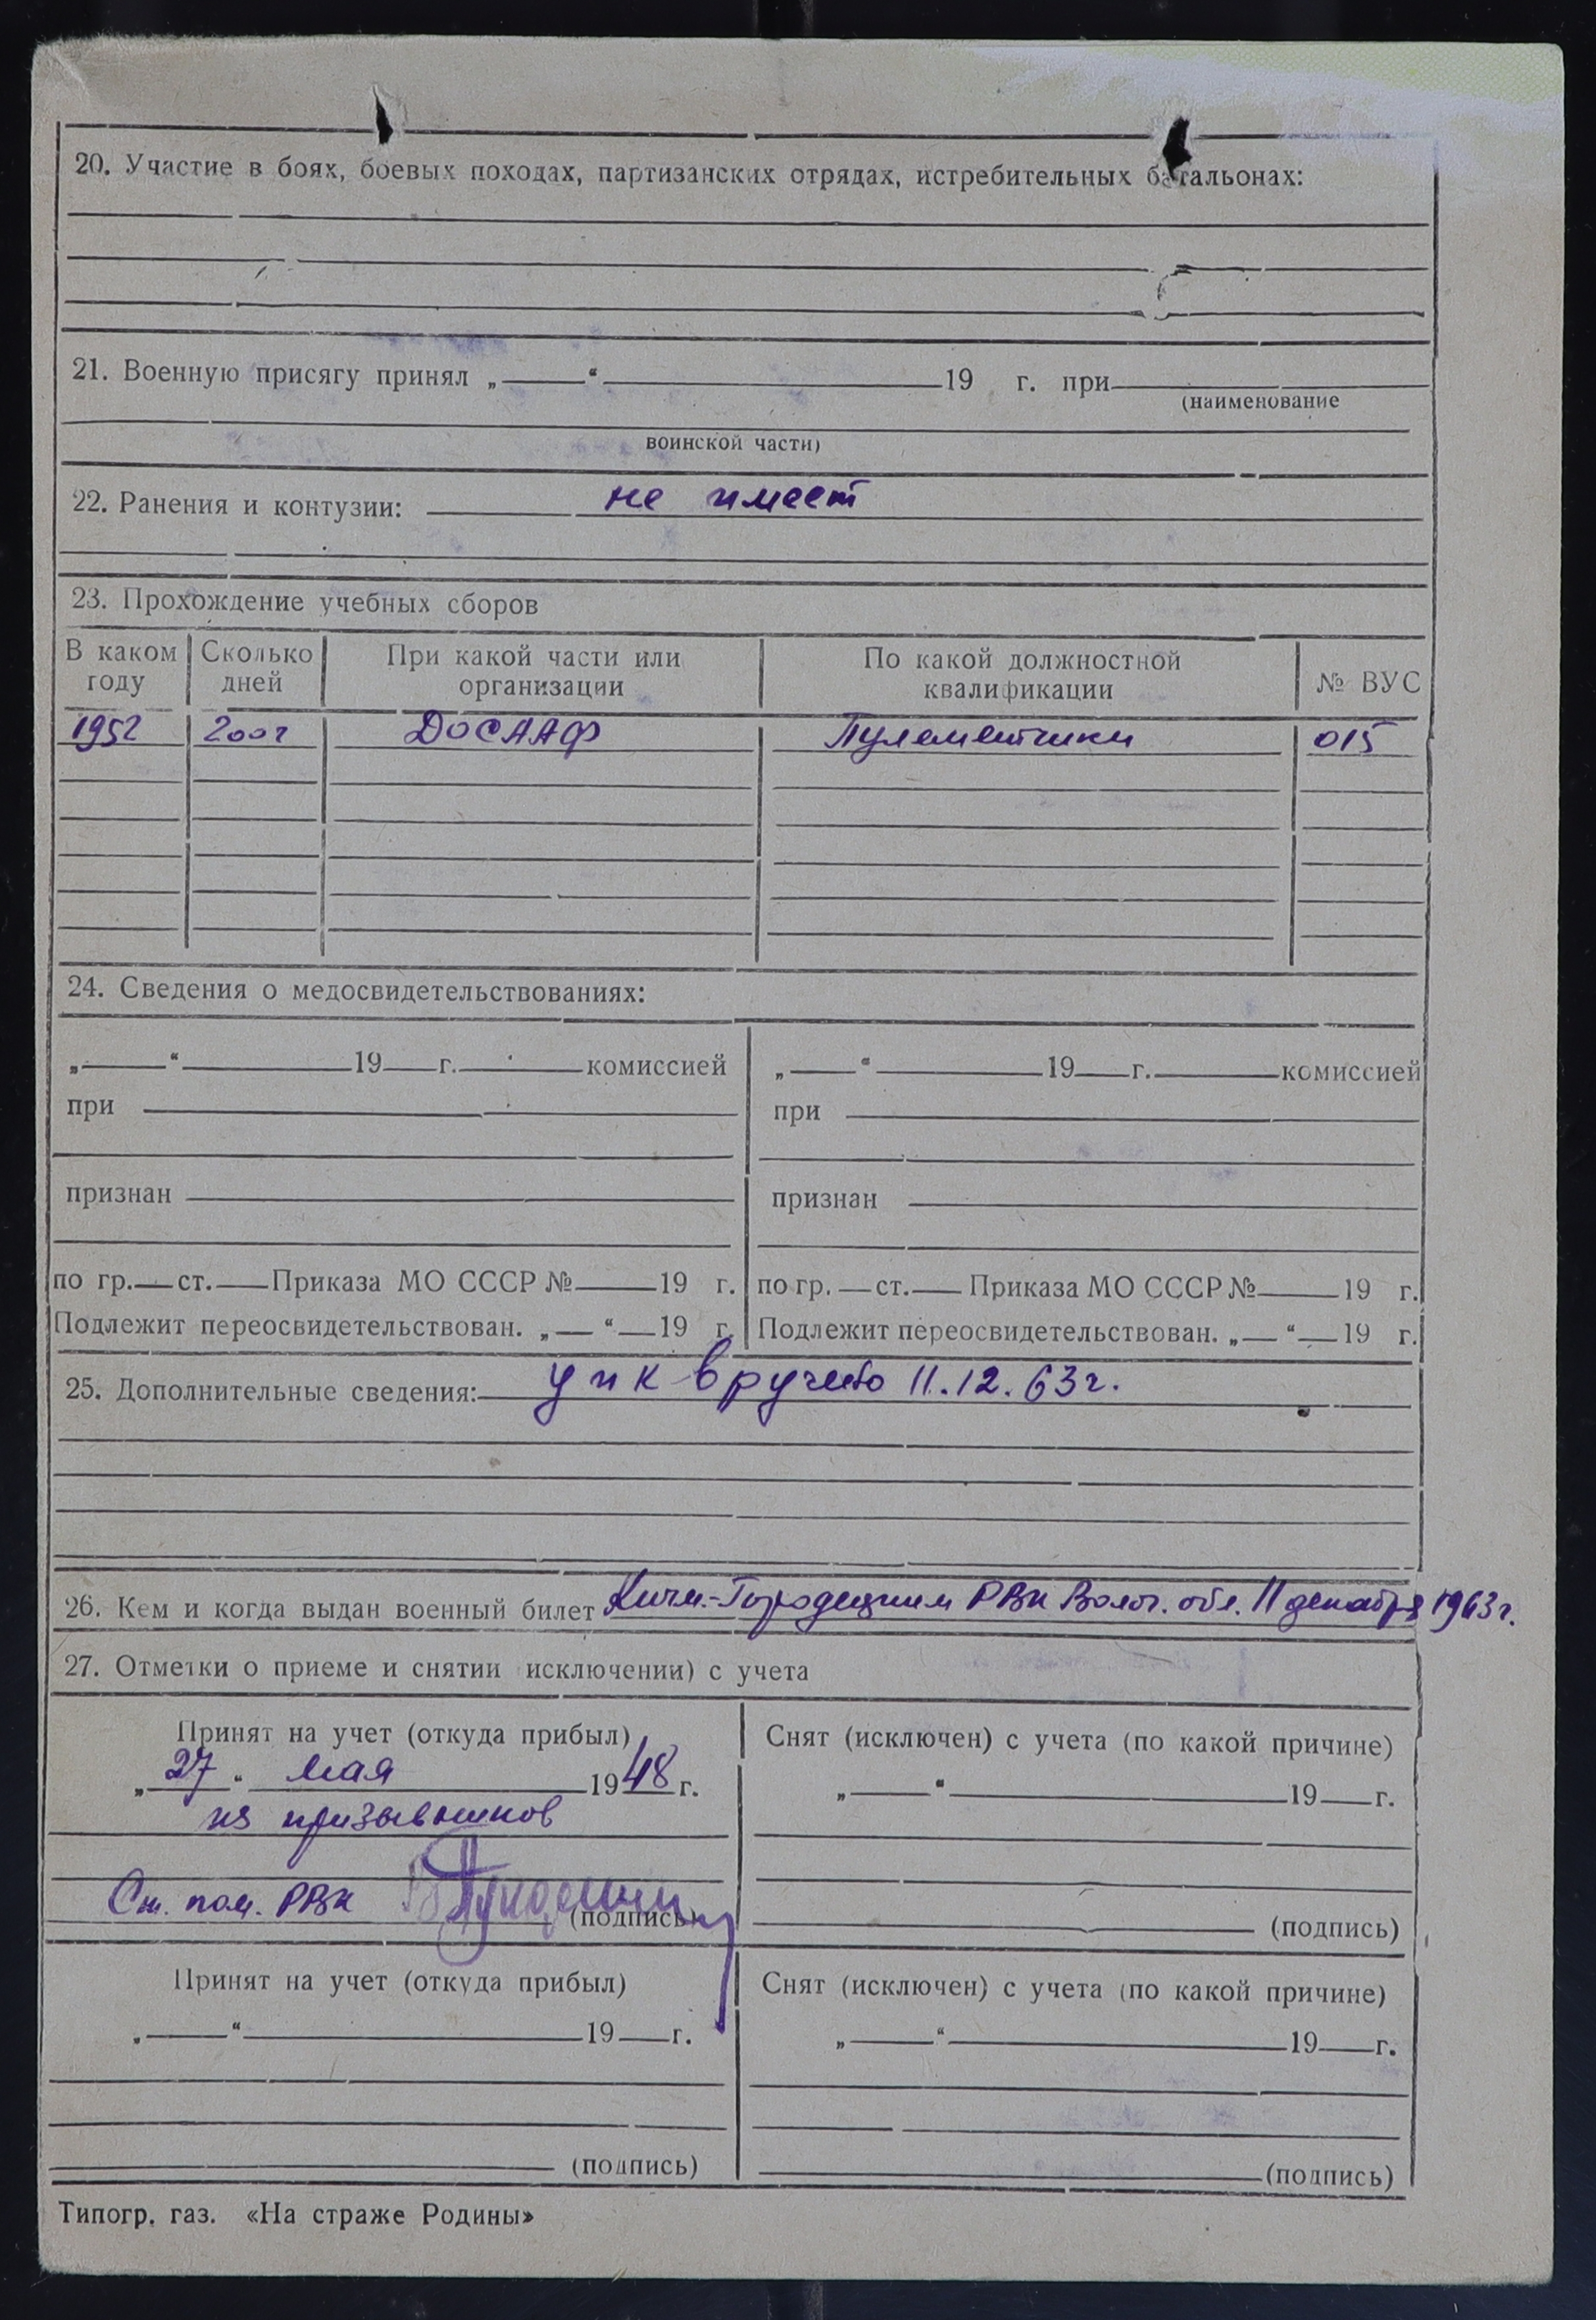 20. Участие в боях, боевых походах, партизанских отрядах, истребительных батальонах:
21. Военную присягу принял „ “ 19 г. при
(наименование
воинской части)
22. Ранения и контузии: не имеет
23. Прохождение учебных сборов
В каком году Сколько дней При какой части или организации По какой должностной квалификации № ВУС
1952 200ч ДОСААФ Пулеметчики 015
24. Сведения о медосвидетельствованиях:
„ “ 19 г. комиссией „ “ 19 г. комиссией
при при
признан признан
по гр. ст. Приказа МО СССР № 19 г. по гр. ст. Приказа МО СССР № 19 г.
Подлежит переосвидетельствован. „ “ 19 г. Подлежит переосвидетельствован. „ “ 19 г.
25. Дополнительные сведения: упк вручено 11.12.63г.
26. Кем и когда выдан военный билет Кичм.-Городецким РВК Волог. обл. 11 декабря 1963г.
27. Отметки о приеме и снятии исключении) с учета
Принят на учет (откуда прибыл) Снят (исключен) с учета (по какой причине)
„27“ мая 1948 г. „ “ 19 г.
из призывников
Ст. пом. РВК (подпись) (подпись)
Принят на учет (откуда прибыл) Снят (исключен) с учета (по какой причине)
„ “ 19 г. „ “ 19 г.
(подпись) (подпись)
Типогр. газ. «На страже Родины»